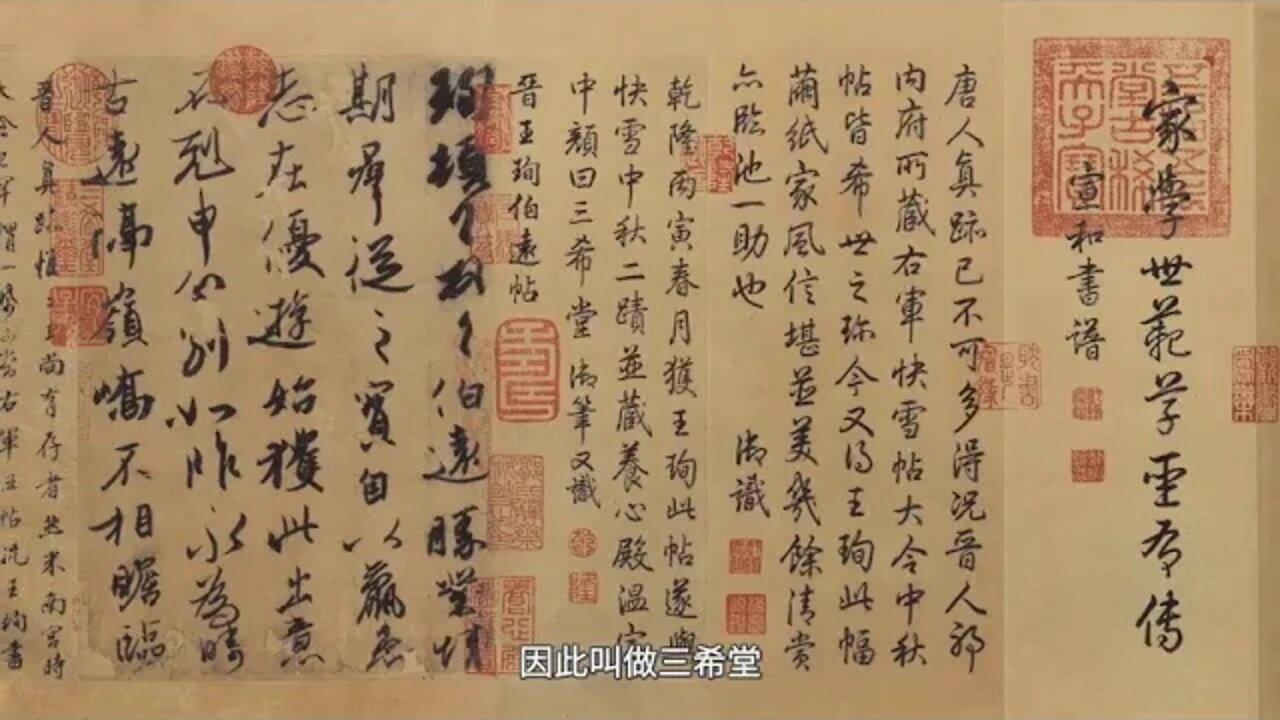 家學世範草聖有傳
宣和書譜
唐人真跡已不可多得況晉人耶
內府所藏右軍快雪帖大令中秋
帖皆希世之珍今又得王珣此幅
繭紙家風信堪並美幾餘清賞
亦臨池一助也 御識
乾隆丙寅春月獲王珣此帖遂與
快雪中秋二蹟並藏養心殿溫室
中顏曰三希堂 御筆又識
晉王珣伯遠帖
珣頓首頓首伯遠勝業情
期群從之寶自以羸患
志在優遊始獲此出意
不剋申分別如昨永為疇
古遠隔嶺嶠不相瞻臨
晉人真跡惟二王尚有存者然米南宮時
大令已罕謂一紙可當右軍五帖況王珣書
因此叫做三希堂